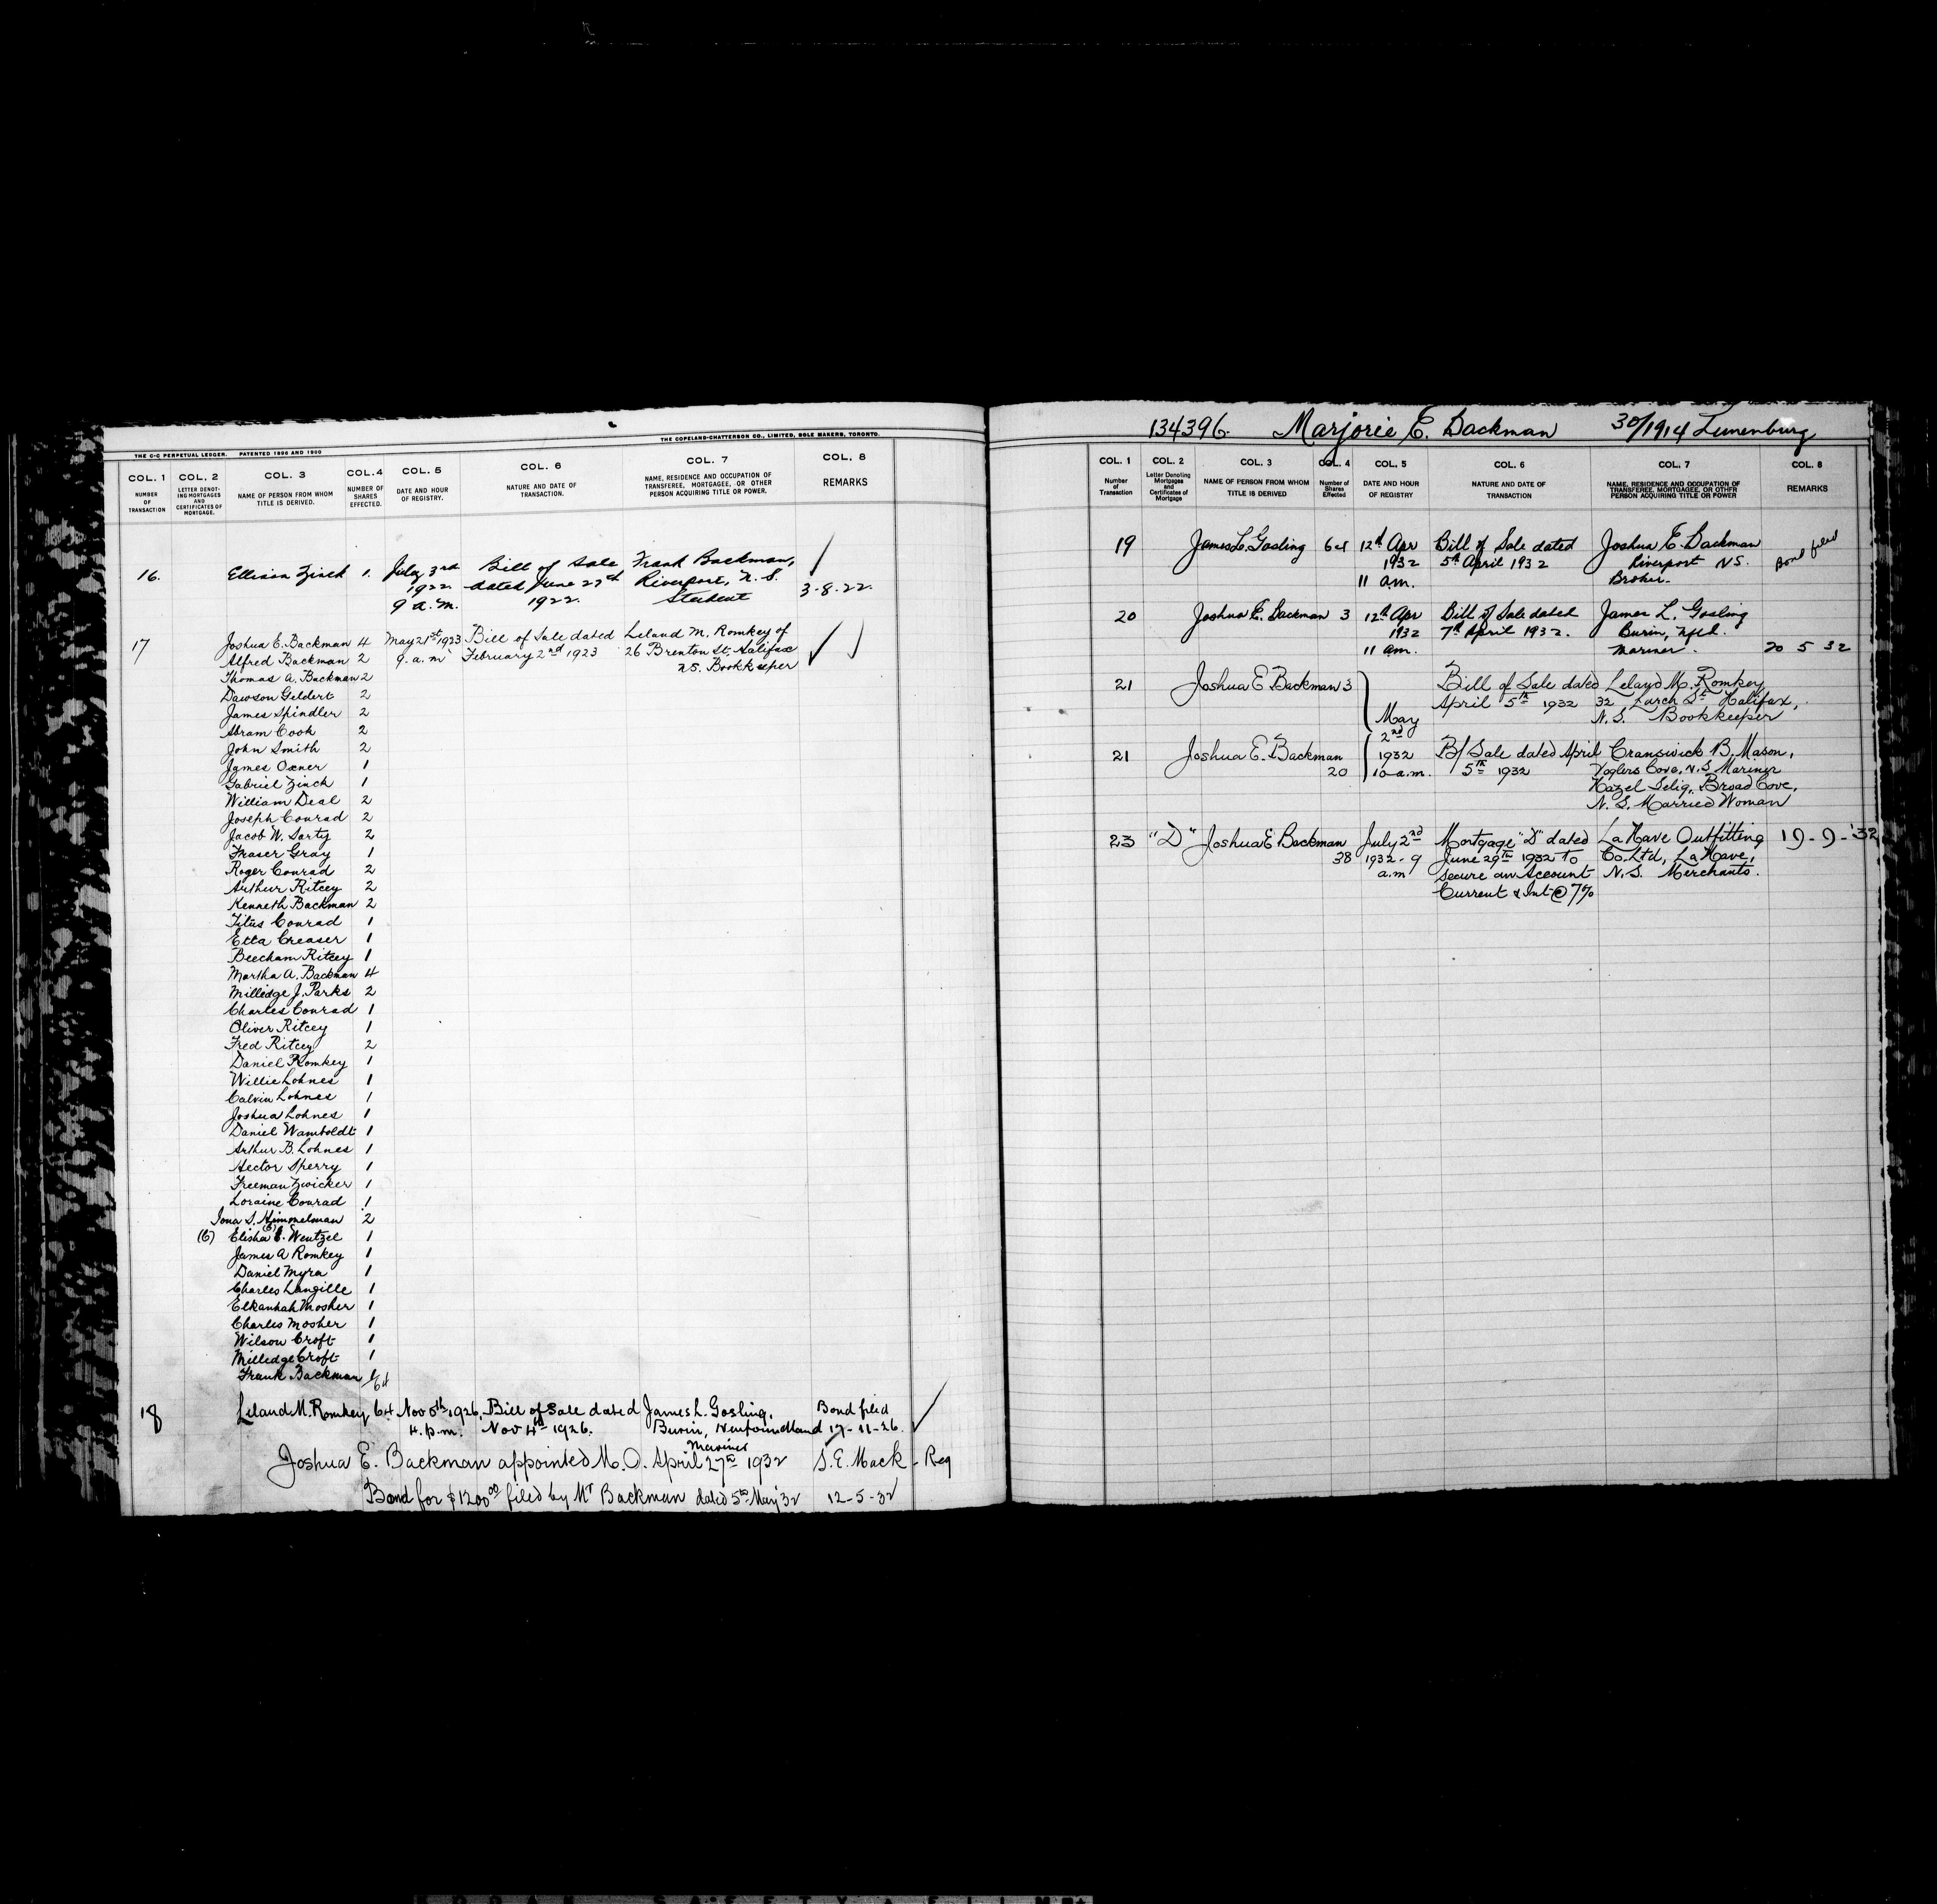 THE C-C PERPETUAL LEDGER. PATENTED 1896 AND 1900
THE COPELAND-CHATTERSON CO., LIMITED, SOLE MAKERS, TORONTO.
COL. 1 COL. 2 COL. 3 COL. 4 COL. 5 COL. 6 COL. 7 COL. 8
NUMBER OF TRANSACTION
LETTER DENOT-ING MORTGAGES AND CERTIFICATES OF MORTGAGE.
NAME OF PERSON FROM WHOM TITLE IS DERIVED.
NUMBER OF SHARES EFFECTED.
DATE AND HOUR OF REGISTRY.
NATURE AND DATE OF TRANSACTION.
NAME, RESIDENCE AND OCCUPATION OF TRANSFEREE, MORTGAGEE, OR OTHER PERSON ACQUIRING TITLE OR POWER.
REMARKS
16. Ellison Zinck 1. July 3rd Bill of Sale Frank Backman,
1922 dated June 27th Riverport, N.S.
9 a.m. 1922. Student 3-8-22.
17 Joshua E. Backman 4 May 21st 1923 Bill of Sale dated Leland M. Romkey of
Alfred Backman 2 9. a.m February 2nd 1923 26 Brenton St. Halifax
Thomas A. Backman 2 N.S. Bookkeeper
Dawson Geldert 2
James Spindler 2
Abram Cook 2
John Smith 2
James Oxner 1
Gabriel Zinck 1
William Deal 2
Joseph Conrad 2
Jacob W. Sarty 2
Fraser Gray 1
Roger Conrad 2
Arthur Ritcey 2
Kenneth Backman 2
Titus Conrad 1
Etta Creaser 1
Beecham Ritcey 1
Martha A. Backman 4
Milledge J. Parks 2
Charles Conrad 1
Oliver Ritcey 1
Fred Ritcey 2
Daniel Romkey 1
Willie Lohnes 1
Calvin Lohnes 1
Joshua Lohnes 1
Daniel Wamboldt 1
Arthur B. Lohnes 1
Hector Sperry 1
Freeman Zwicker 1
Loraine Conrad 1
Iona S. Himmelman 2
(6) Elisha Wentzel 1
James A Romkey 1
Daniel Myra 1
Charles Langille 1
Elkannah Mosher 1
Charles Mosher 1
Wilson Croft 1
Milledge Croft 1
Frank Backman 1/64
18 Leland M. Romkey 64 Nov 5th 1926. Bill of Sale dated James L. Gosling, Bond filed
4. p.m. Nov 4th 1926. Burin, Newfoundland 17-11-26.
Mariner
Joshua E. Backman appointed M.O. April 27th 1932 S.E. Mack - Reg
Bond for $1200 00 filed by Mr Backman dated 5th May '32 12-5-32
134396. Marjorie E. Backman 30/1914 Lunenburg
COL. 1 COL. 2 COL. 3 COL. 4 COL. 5 COL. 6 COL. 7 COL. 8
Number of Transaction
Letter Denoting Mortgages and Certificates of Mortgage
NAME OF PERSON FROM WHOM TITLE IS DERIVED
Number of Shares Effected
DATE AND HOUR OF REGISTRY
NATURE AND DATE OF TRANSACTION
NAME, RESIDENCE AND OCCUPATION OF TRANSFEREE, MORTGAGEE, OR OTHER PERSON ACQUIRING TITLE OR POWER
REMARKS
19 James L. Gosling 64 12th Apr Bill of Sale dated Joshua E. Backman Bond filed
1932 5th April 1932 Riverport N.S.
11 a.m. Broker.
20 Joshua E. Backman 3 12th Apr Bill of Sale dated James L. Gosling
1932 7th April 1932. Burin, Nfld.
11 am. Mariner. 20 5 32
21 Joshua E Backman 3 Bill of Sale dated Leland M. Romkey
April 5th 1932 32 Larch St Halifax,
May N.S. Bookkeeper
2nd
21 Joshua E. Backman 1932 B/Sale dated April Cranswick B. Mason,
20 10 a.m. 5th 1932 Voglers Cove, N.S Mariner
Hazel Selig, Broad Cove,
N.S. Married Woman
23 "D" Joshua E Backman July 2nd Mortgage "D" dated La Have Outfitting 19-9-'32
38 1932-9 June 29th 1932 to Co. Ltd, La Have,
a.m secure an Account N.S. Merchants.
Current & Int @ 7%